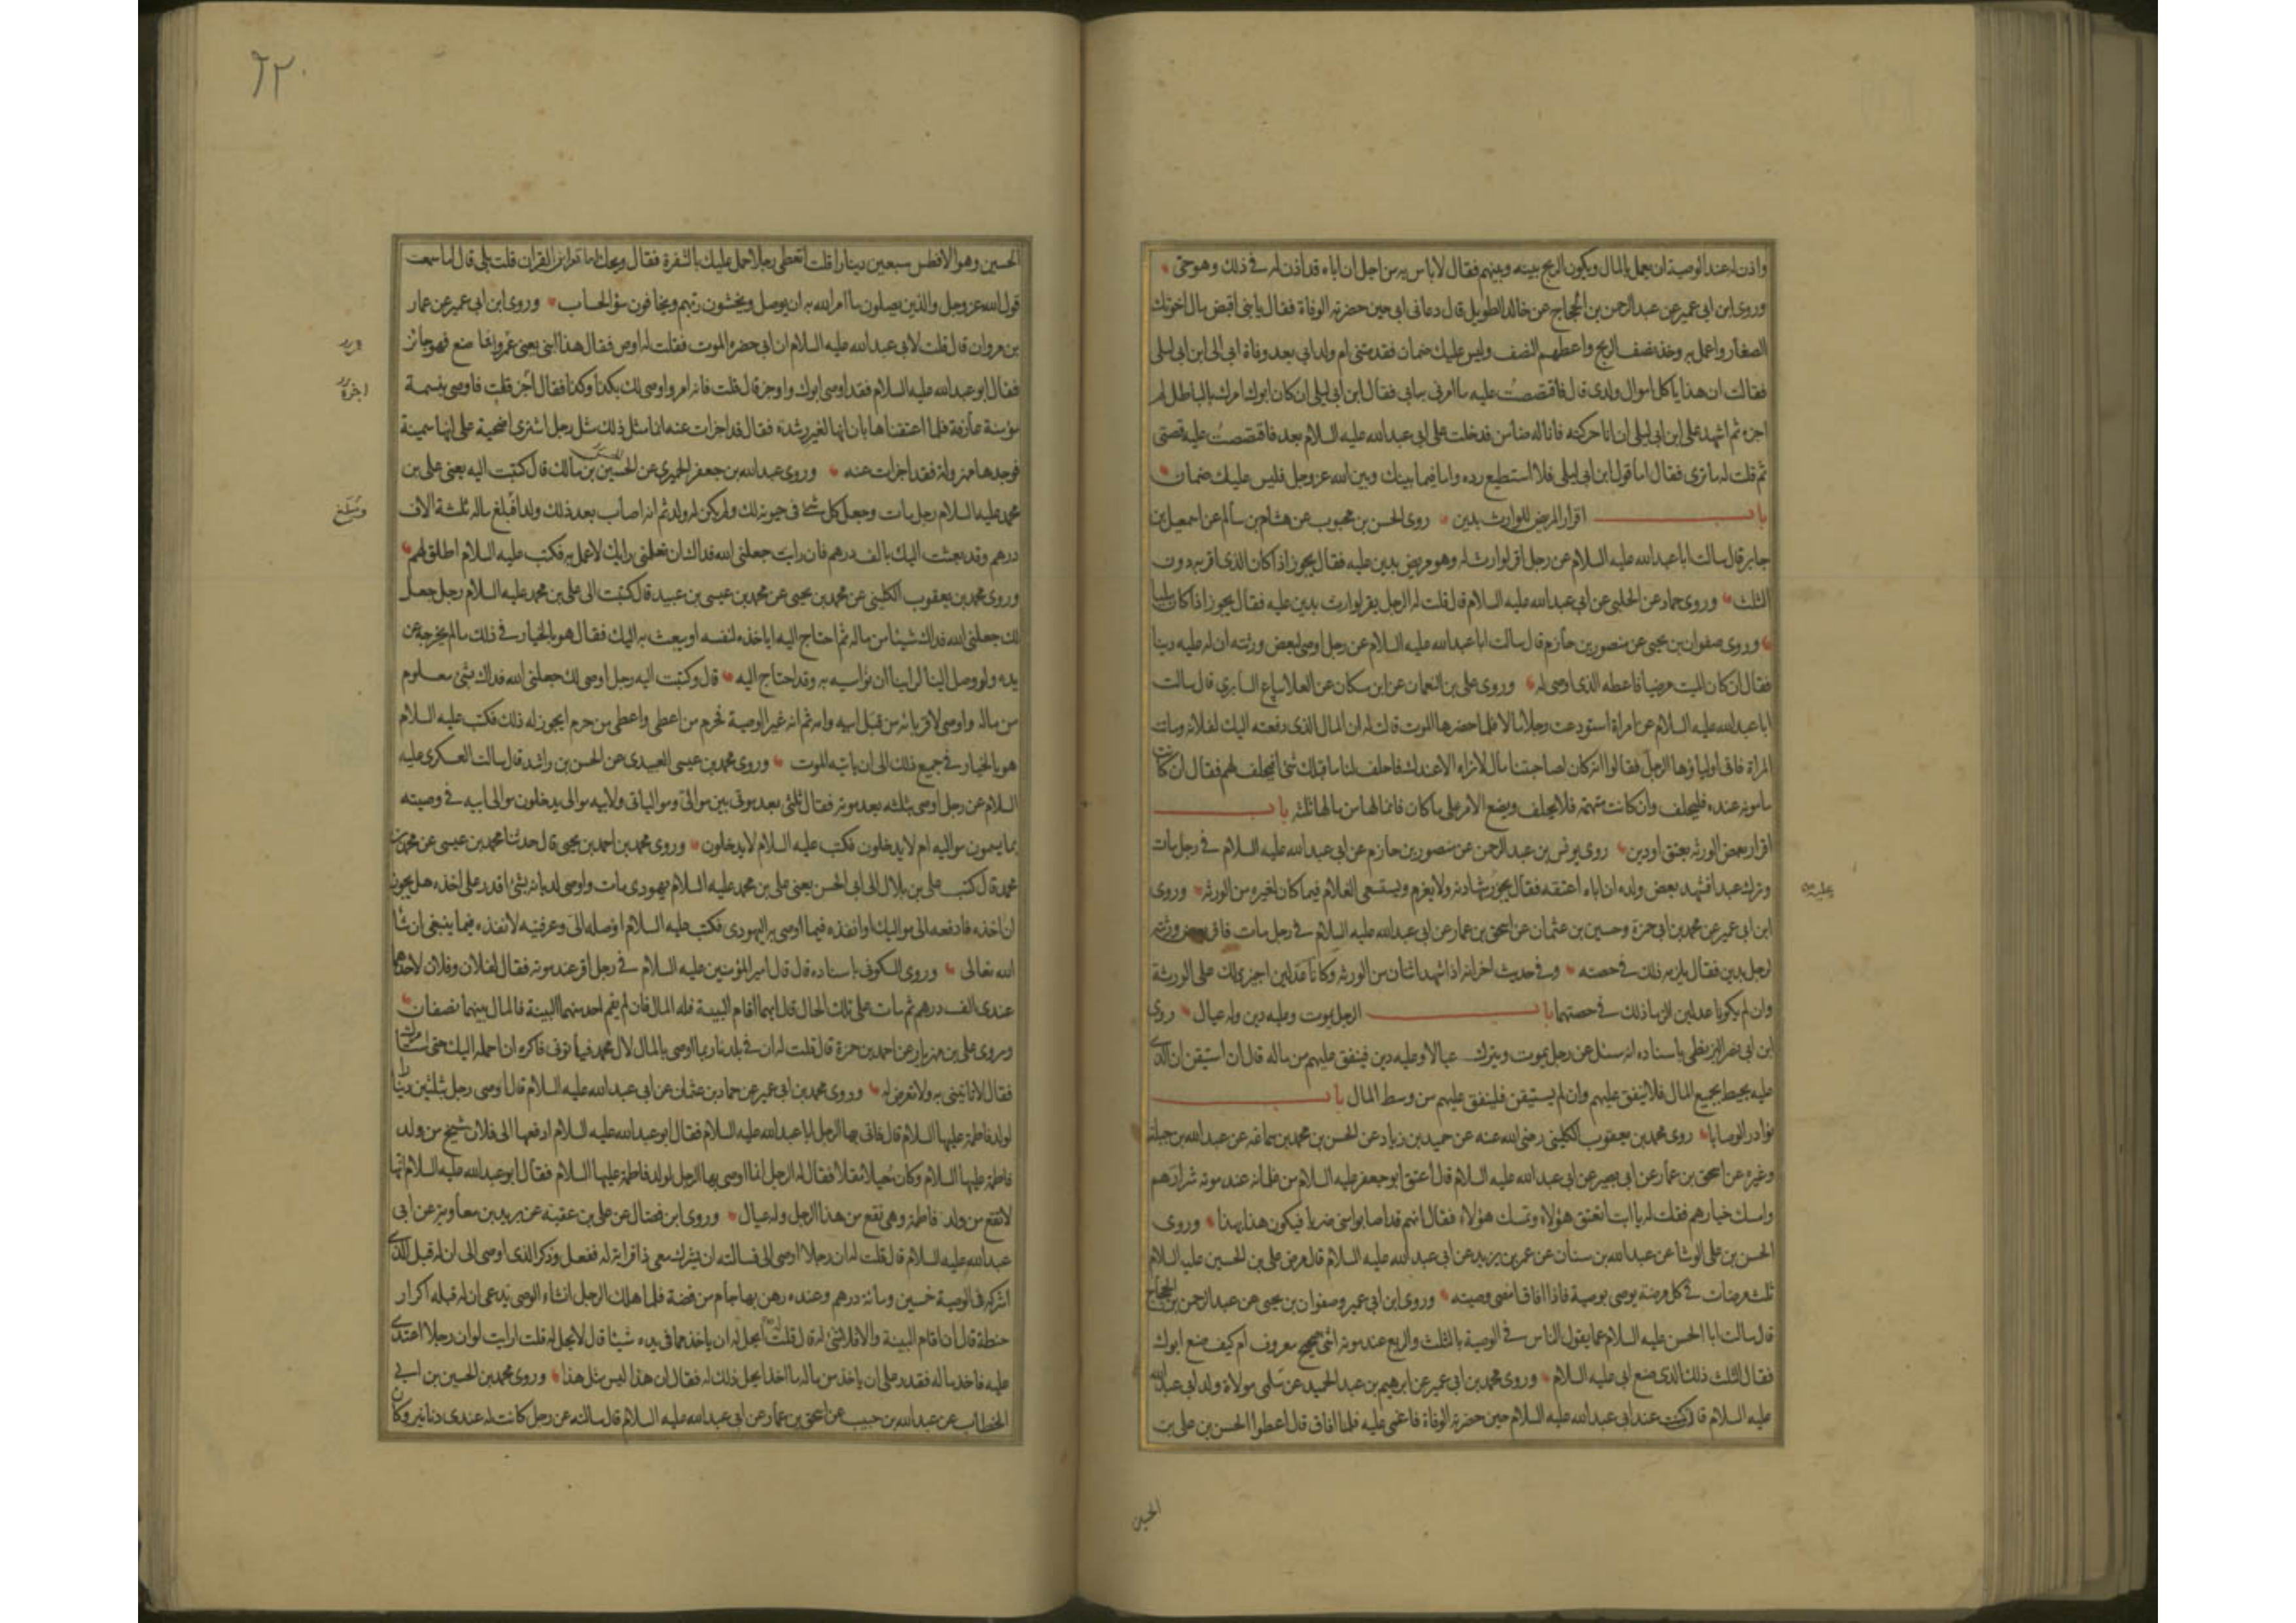 واذن له عند الوصية ان يعمل بالمال ويكون الربح بينه وبينهم فقال لا باس به من اجل ان اباه قد اذن له في ذلك وهو حي
وروى ابن ابي عمير عن عبد الرحمن بن الحجاج عن خالد الطويل قال دعاني ابي حين حضرته الوفاة فقال يا بني اقبض مال اخوتك
الصغار واعمل به وخذ نصف الربح واعطهم النصف وليس عليك ضمان فقدمتني ام ولد ابي بعد وفاة ابي الى ابن ابي ليلى
فقالت ان هذا ياكل اموال ولدي قال فاقتصصت عليه ما امرني به ابي فقال ابن ابي ليلى ان كان ابوك امرك بالباطل لم
اجزه ثم اشهد على ابن ابي ليلى ان انا حركته فانا له ضامن فدخلت على ابي عبد الله عليه السلام بعد فاقتصصت عليه قصتي
ثم قلت له ما ترى فقال اما قول ابن ابي ليلى فلا استطيع رده واما فيما بينك وبين الله عز وجل فليس عليك ضمان
باب اقرار المريض للوارث بدين روى الحسن بن محبوب عن هشام بن سالم عن اسمعيل بن
جابر قال سالت ابا عبد الله عليه السلام عن رجل اقر لوارث له وهو مريض بدين عليه فقال يجوز اذا كان الذي اقر به دون
الثلث وروى حماد عن الحلبي عن ابي عبد الله عليه السلام قال قلت له الرجل يقر لوارث بدين عليه فقال يجوز اذا كان مليا
وروى صفوان بن يحيى عن منصور بن حازم قال سالت ابا عبد الله عليه السلام عن رجل اوصى لبعض ورثته ان له عليه دينا
فقال ان كان الميت مرضيا فاعطه الذي اوصى له وروى علي بن النعمان عن ابن مسكان عن العلا بياع السابري قال سالت
ابا عبد الله عليه السلام عن امراة استودعت رجلا مالا فلما حضرها الموت قالت له ان المال الذي دفعته اليك لفلانة وماتت
المراة فاتى اولياؤها الرجل فقالوا انه كان لصاحبتنا مال لا نراه الا عندك فاحلف لنا ما قبلك شئ افيحلف لهم فقال ان كانت
مامونة عنده فليحلف وان كانت متهمة فلا يحلف ويضع الامر على ما كان فانما لها من مالها ثلثه باب
اقرار بعض الورثة بعتق او دين روى يونس بن عبد الرحمن عن منصور بن حازم عن ابي عبد الله عليه السلام في رجل مات
وترك عبدا فشهد بعض ولده ان اباه اعتقه فقال يجوز شهادته ولا يغرم ويستسعى الغلام فيما كان لغيره من الورثة وروى
ابن ابي عمير عن محمد بن ابي حمزة وحسين بن عثمان عن اسحق بن عمار عن ابي عبد الله عليه السلام في رجل مات فاقر بعض ورثته
لرجل بدين فقال يلزمه ذلك في حصته وفي حديث اخر انه اذا شهد اثنان من الورثة وكانا عدلين اجيز ذلك على الورثة
وان لم يكونا عدلين الزما ذلك في حصتهما باب الرجل يموت وعليه دين وله عيال روى
ابن ابي نصر البزنطي باسناده انه سئل عن رجل يموت ويترك عيالا وعليه دين فينفق عليهم من ماله قال ان استيقن ان الذي
عليه يحيط بجميع المال فلا ينفق عليهم وان لم يستيقن فلينفق عليهم من وسط المال باب
نوادر الوصايا روى محمد بن يعقوب الكليني رضي الله عنه عن حميد بن زياد عن الحسن بن محمد بن سماعة عن عبد الله بن جبلة
وغيره عن اسحق بن عمار عن ابي بصير عن ابي عبد الله عليه السلام قال اعتق ابو جعفر عليه السلام من غلمانه عند موته شرارهم
وامسك خيارهم فقلت له يا ابت تعتق هؤلاء وتمسك هؤلاء فقال انهم قد اصابوا مني ضربا فيكون هذا بهذا وروى
الحسن بن علي الوشا عن عبد الله بن سنان عن عمر بن يزيد عن ابي عبد الله عليه السلام قال مرض علي بن الحسين عليه السلام
ثلث مرضات في كل مرضة يوصي بوصية فاذا افاق امضى وصيته وروى ابن ابي عمير وصفوان بن يحيى عن عبد الرحمن بن الحجاج
قال سالت ابا الحسن عليه السلام عما يقول الناس في الوصية بالثلث والربع عند موته اشئ صحيح معروف ام كيف صنع ابوك
فقال الثلث ذلك الذي صنع ابي عليه السلام وروى محمد بن ابي عمير عن ابرهيم بن عبد الحميد عن سلمى مولاة ولد ابي عبد الله
عليه السلام قالت كنت عند ابي عبد الله عليه السلام حين حضرته الوفاة فاغمي عليه فلما افاق قال اعطوا الحسن بن علي بن
الحسين
٦٢٠
الحسين وهو الافطس سبعين دينارا قلت اتعطي رجلا حمل عليك بالشفرة فقال ويحك اما تقراين القران قلت بلى قال اما سمعت
قول الله عز وجل والذين يصلون ما امر الله به ان يوصل ويخشون ربهم ويخافون سؤ الحساب وروى ابن ابي عمير عن عمار
بن مروان قال قلت لابي عبد الله عليه السلام ان ابي حضره الموت فقلت له اوص فقال هذا ابني يعني عمر فما صنع فهو جائز
فقال ابو عبد الله عليه السلام فقد اوصى ابوك واوجز قال قلت فانه امر واوصى لك بكذا وكذا فقال اجز قلت فاوصى بنسمة
مؤمنة عارفة فلما اعتقناها بان انها لغير رشدة فقال قد اجزات عنه انما مثل ذلك مثل رجل اشترى اضحية على انها سمينة
فوجدها مهزولة فقد اجزات عنه وروى عبد الله بن جعفر الحميري عن الحسين بن مالك قال كتبت اليه يعني علي بن
محمد عليه السلام رجل مات وجعل كل شئ في حيوته لك ولم يكن له ولد ثم انه اصاب بعد ذلك ولدا فبلغ ماله ثلثة الاف
ومبلغ
درهم وقد بعثت اليك بالف درهم فان رايت جعلني الله فداك ان تعلمني رايك لاعمل به فكتب عليه السلام اطلق لهم
وروى محمد بن يعقوب الكليني عن محمد بن يحيى عن محمد بن عيسى بن عبيد قال كتبت الى علي بن محمد عليه السلام رجل جعل
لك جعلني الله فداك شيئا من ماله ثم احتاج اليه اياخذه لنفسه او يبعث به اليك فقال هو بالخيار في ذلك ما لم يخرجه عن
يده ولو وصل الينا لراينا ان نواسيه به وقد احتاج اليه قال وكتبت اليه رجل اوصى لك جعلني الله فداك بشئ معلوم
من ماله واوصى لاقربائه من قبل ابيه وامه ثم انه غير الوصية فحرم من اعطى واعطى من حرم ايجوز له ذلك فكتب عليه السلام
هو بالخيار في جميع ذلك الى ان ياتيه الموت وروى محمد بن عيسى العبيدي عن الحسن بن راشد قال سالت العسكري عليه
السلام عن رجل اوصى بثلثه بعد موته فقال ثلثي بعد موتي بين موالي ومولياتي ولابيه موالي يدخلون موالي ابيه في وصيته
بما يسمون مواليه ام لا يدخلون فكتب عليه السلام لا يدخلون وروى محمد بن احمد بن يحيى قال حدثنا محمد بن عيسى عن محمد بن
محمد قال كتب علي بن بلال الى ابي الحسن يعني علي بن محمد عليه السلام يهودي مات واوصى لديانه بشئ اقدر على اخذه هل يجوز
ان اخذه فادفعه الى مواليك او انفذه فيما اوصى به اليهودي فكتب عليه السلام اوصله الي وعرفنيه لانفذه فيما ينبغي ان شا
الله تعالى وروى السكوني باسناده قال قال امير المؤمنين عليه السلام في رجل اقر عند موته فقال لفلان وفلان لاحدهما
عندي الف درهم ثم مات على تلك الحال قال ايهما اقام البينة فله المال فان لم يقم احد منهما البينة فالمال بينهما نصفان
وروى علي بن مهزيار عن احمد بن حمزة قال قلت له ان في بلدنا ربما اوصي بالمال لال محمد فياتوني فاكره ان احمله اليك حتى استامرك
فقال لا تاتني به ولا تعرض له وروى محمد بن ابي عمير عن حماد بن عثمان عن ابي عبد الله عليه السلام قال اوصى رجل بثلثين دينارا
لولد فاطمة عليها السلام قال فاتى بها الرجل ابا عبد الله عليه السلام فقال ابو عبد الله عليه السلام ادفعها الى فلان شيخ من ولد
فاطمة عليها السلام وكان معيلا مقلا فقال له الرجل انما اوصى بها الرجل لولد فاطمة عليها السلام فقال ابو عبد الله عليه السلام انها
لا تقع من ولد فاطمة وهي تقع من هذا الرجل وله عيال وروى ابن فضال عن علي بن عقبة عن بريد بن معاوية عن ابي
عبد الله عليه السلام قال قلت له ان رجلا اوصى الي فسالته ان يشرك معي ذا قرابة له ففعل وذكر الذي اوصى الي ان له قبل الذي
اشركه في الوصية خمسين ومائة درهم وعنده رهن بها جام من فضة فلما هلك الرجل انشاء الوصي يدعي ان له قبله اكرار
حنطة قال ان اقام البينة والا فلا شئ له قال قلت له ايحل له ان ياخذ مما في يده شيئا قال لا يحل له قلت ارايت لو ان رجلا اعتدى
عليه فاخذ ماله فقدر على ان ياخذ من ماله ما اخذ ايحل ذلك له فقال ان هذا ليس مثل هذا وروى محمد بن الحسين بن ابي
الخطاب عن عبد الله بن حبيب عن اسحق بن عمار عن ابي عبد الله عليه السلام قال سالته عن رجل كانت له عندي دنانير وكان